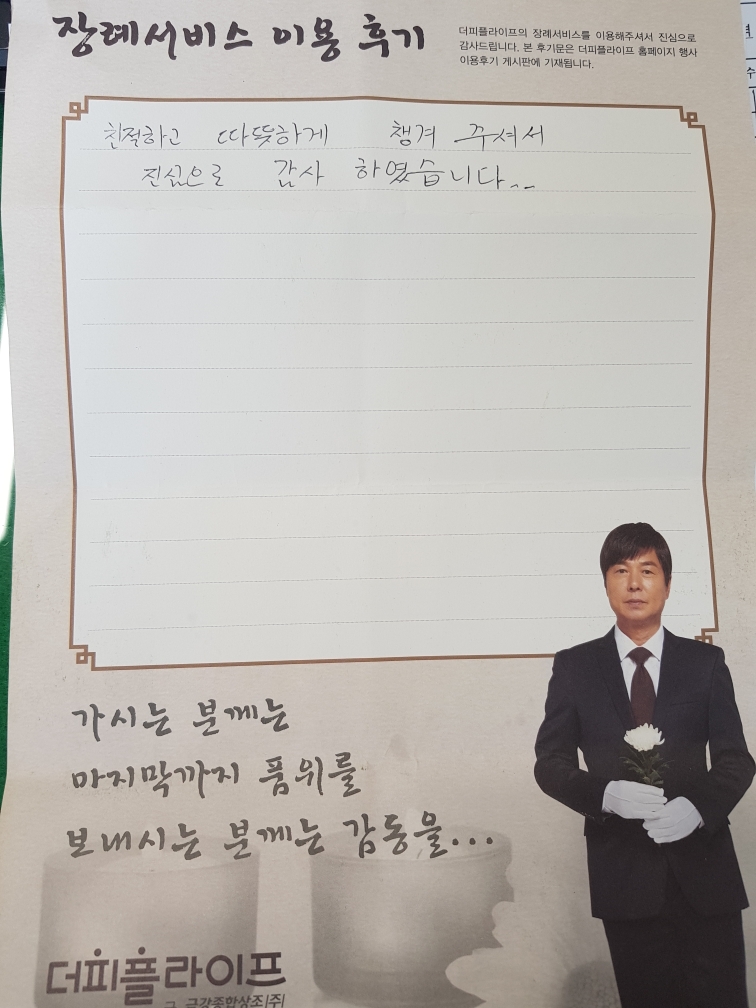 장례서비스 이용 후기
더피플라이프의 장례서비스를 이용해주셔서 진심으로
감사드립니다. 본 후기문은 더피플라이프 홈페이지 행사
이용후기 게시판에 기재됩니다.
친절하고 따뜻하게 챙겨 주셔서
진심으로 감사 하였습니다^^
가시는 분께는
마지막까지 품위를
보내시는 분께는 감동을...
더피플라이프
구. 금강종합상조(주)